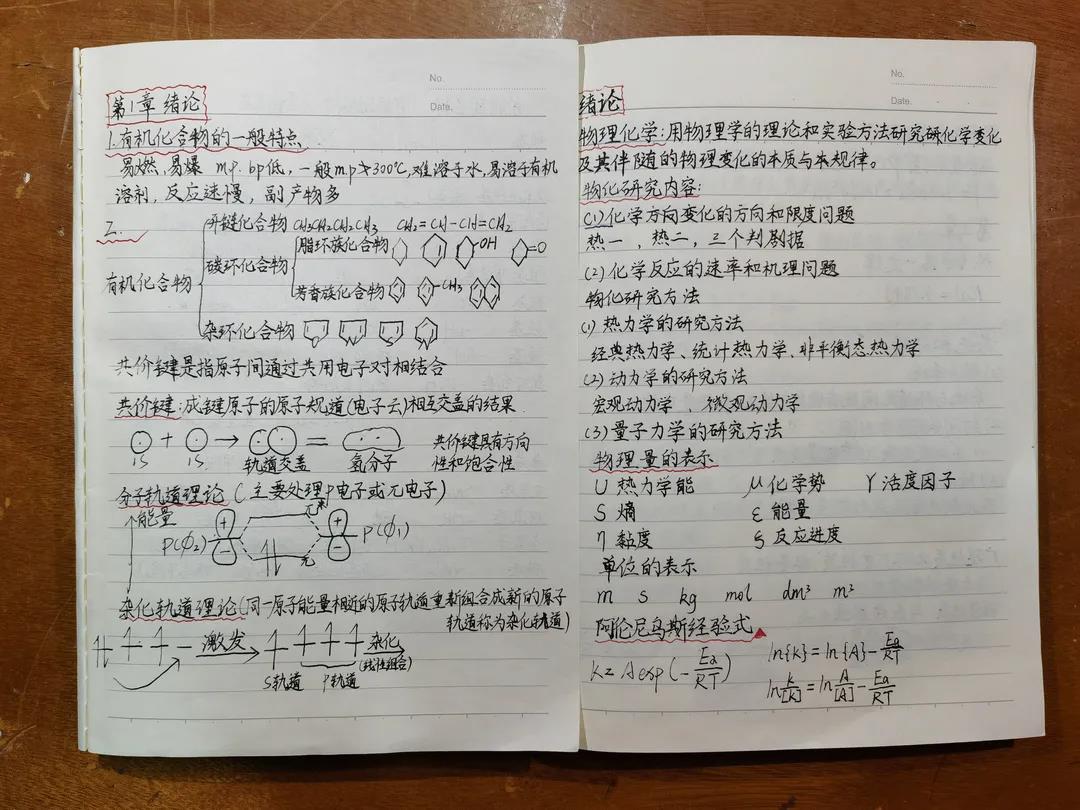 No.
Date.
第1章 绪论
1.有机化合物的一般特点
易燃,易爆 m.p. bp低,一般m.p≯300℃,难溶于水,易溶于有机
溶剂,反应速慢,副产物多
2.
有机化合物
开链化合物 CH₃CH₂CH₂CH₃ CH₂=CH-CH=CH₂
碳环化合物
脂环族化合物 OH =O
芳香族化合物 -CH₃
杂环化合物
共价键是指原子间通过共用电子对相结合
共价键:成键原子的原子轨道(电子云)相互交盖的结果
+ → =
1S 1S 轨道交盖 氢分子
共价键具有方向
性和饱合性
分子轨道理论(主要处理p电子或π电子)
能量
π*
P(ϕ₂) + − + − P(ϕ₁)
π
杂化轨道理论(同一原子能量相近的原子轨道重新组合成新的原子
轨道称为杂化轨道)
激发 杂化
(线性组合)
S轨道 P轨道
No.
Date.
绪论
物理化学:用物理学的理论和实验方法研究研化学变化
及其伴随的物理变化的本质与本规律。
物化研究内容:
(1)化学方向变化的方向和限度问题
热一,热二,三个判剧据
(2)化学反应的速率和机理问题
物化研究方法
(1)热力学的研究方法
经典热力学、统计热力学、非平衡态热力学
(2)动力学的研究方法
宏观动力学、微观动力学
(3)量子力学的研究方法
物理量的表示
U 热力学能 μ 化学势 γ 活度因子
S 熵 ε 能量
η 黏度 ξ 反应进度
单位的表示
m s kg mol dm³ m³
阿伦尼乌斯经验式
k= A exp(-Ea/RT) ln{k}=ln{A}-Ea/RT
ln k/[k]=ln A/[A]-Ea/RT